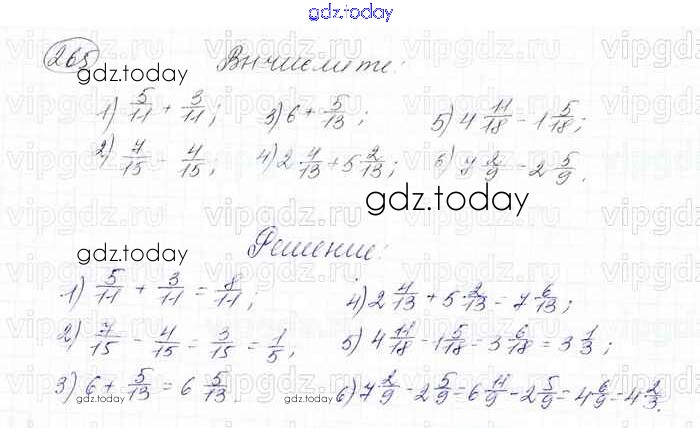 gdz.today
265 Вычислите:
gdz.today
1) 5/11 + 3/11; 3) 6 + 5/13; 5) 4 11/18 - 1 5/18;
2) 7/15 - 4/15; 4) 2 4/13 + 5 2/13; 6) 7 2/9 - 2 5/9.
gdz.today
Решение:
gdz.today
1) 5/11 + 3/11 = 8/11; 4) 2 4/13 + 5 2/13 - 7 6/13;
2) 7/15 - 4/15 = 3/15 = 1/5; 5) 4 11/18 - 1 5/18 = 3 6/18 = 3 1/3;
3) 6 + 5/13 = 6 5/13. 6) 7 2/9 - 2 5/9 = 6 11/9 - 2 5/9 = 4 6/9 = 4 2/3.
gdz.today
gdz.today